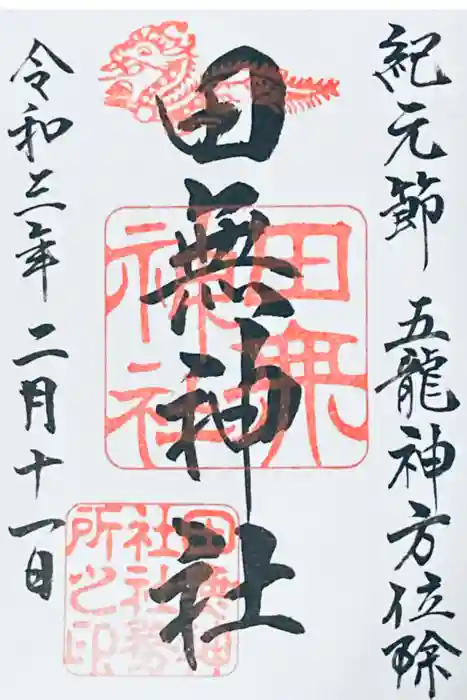 紀元節 五龍神方位除
田無神社
田無神社
田無神社社務所之印
令和三年 二月十一日